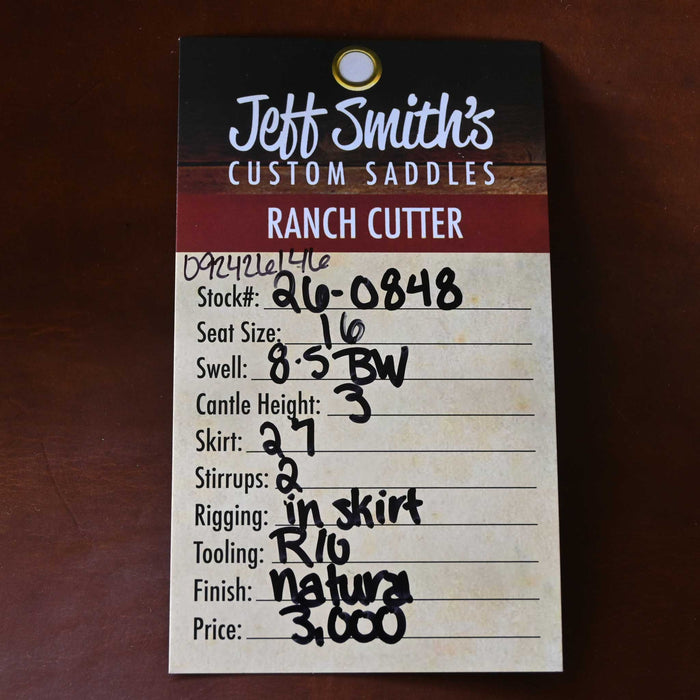 Jeff Smith's
CUSTOM SADDLES
RANCH CUTTER
092426146
Stock#: 26-0848
Seat Size: 16
Swell: 8.5 BW
Cantle Height: 3
Skirt: 27
Stirrups: 2
Rigging: in skirt
Tooling: R/O
Finish: natura
Price: 3,000